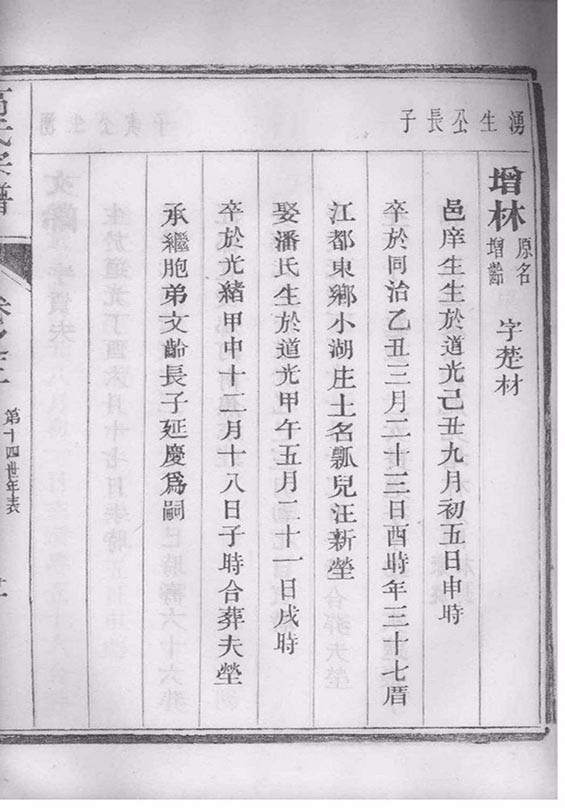 湧生公長子
增林 原名增齡 字楚材
邑庠生生於道光己丑九月初五日申時
卒於同治乙丑三月二十三日酉時年三十七厝
江都東鄉小湖庄土名瓢兒汪新塋
娶潘氏生於道光甲午五月二十一日戌時
卒於光緒甲申十二月十八日子時合葬夫塋
承繼胞弟文齡長子延慶爲嗣
氏宗譜
第十四世年表